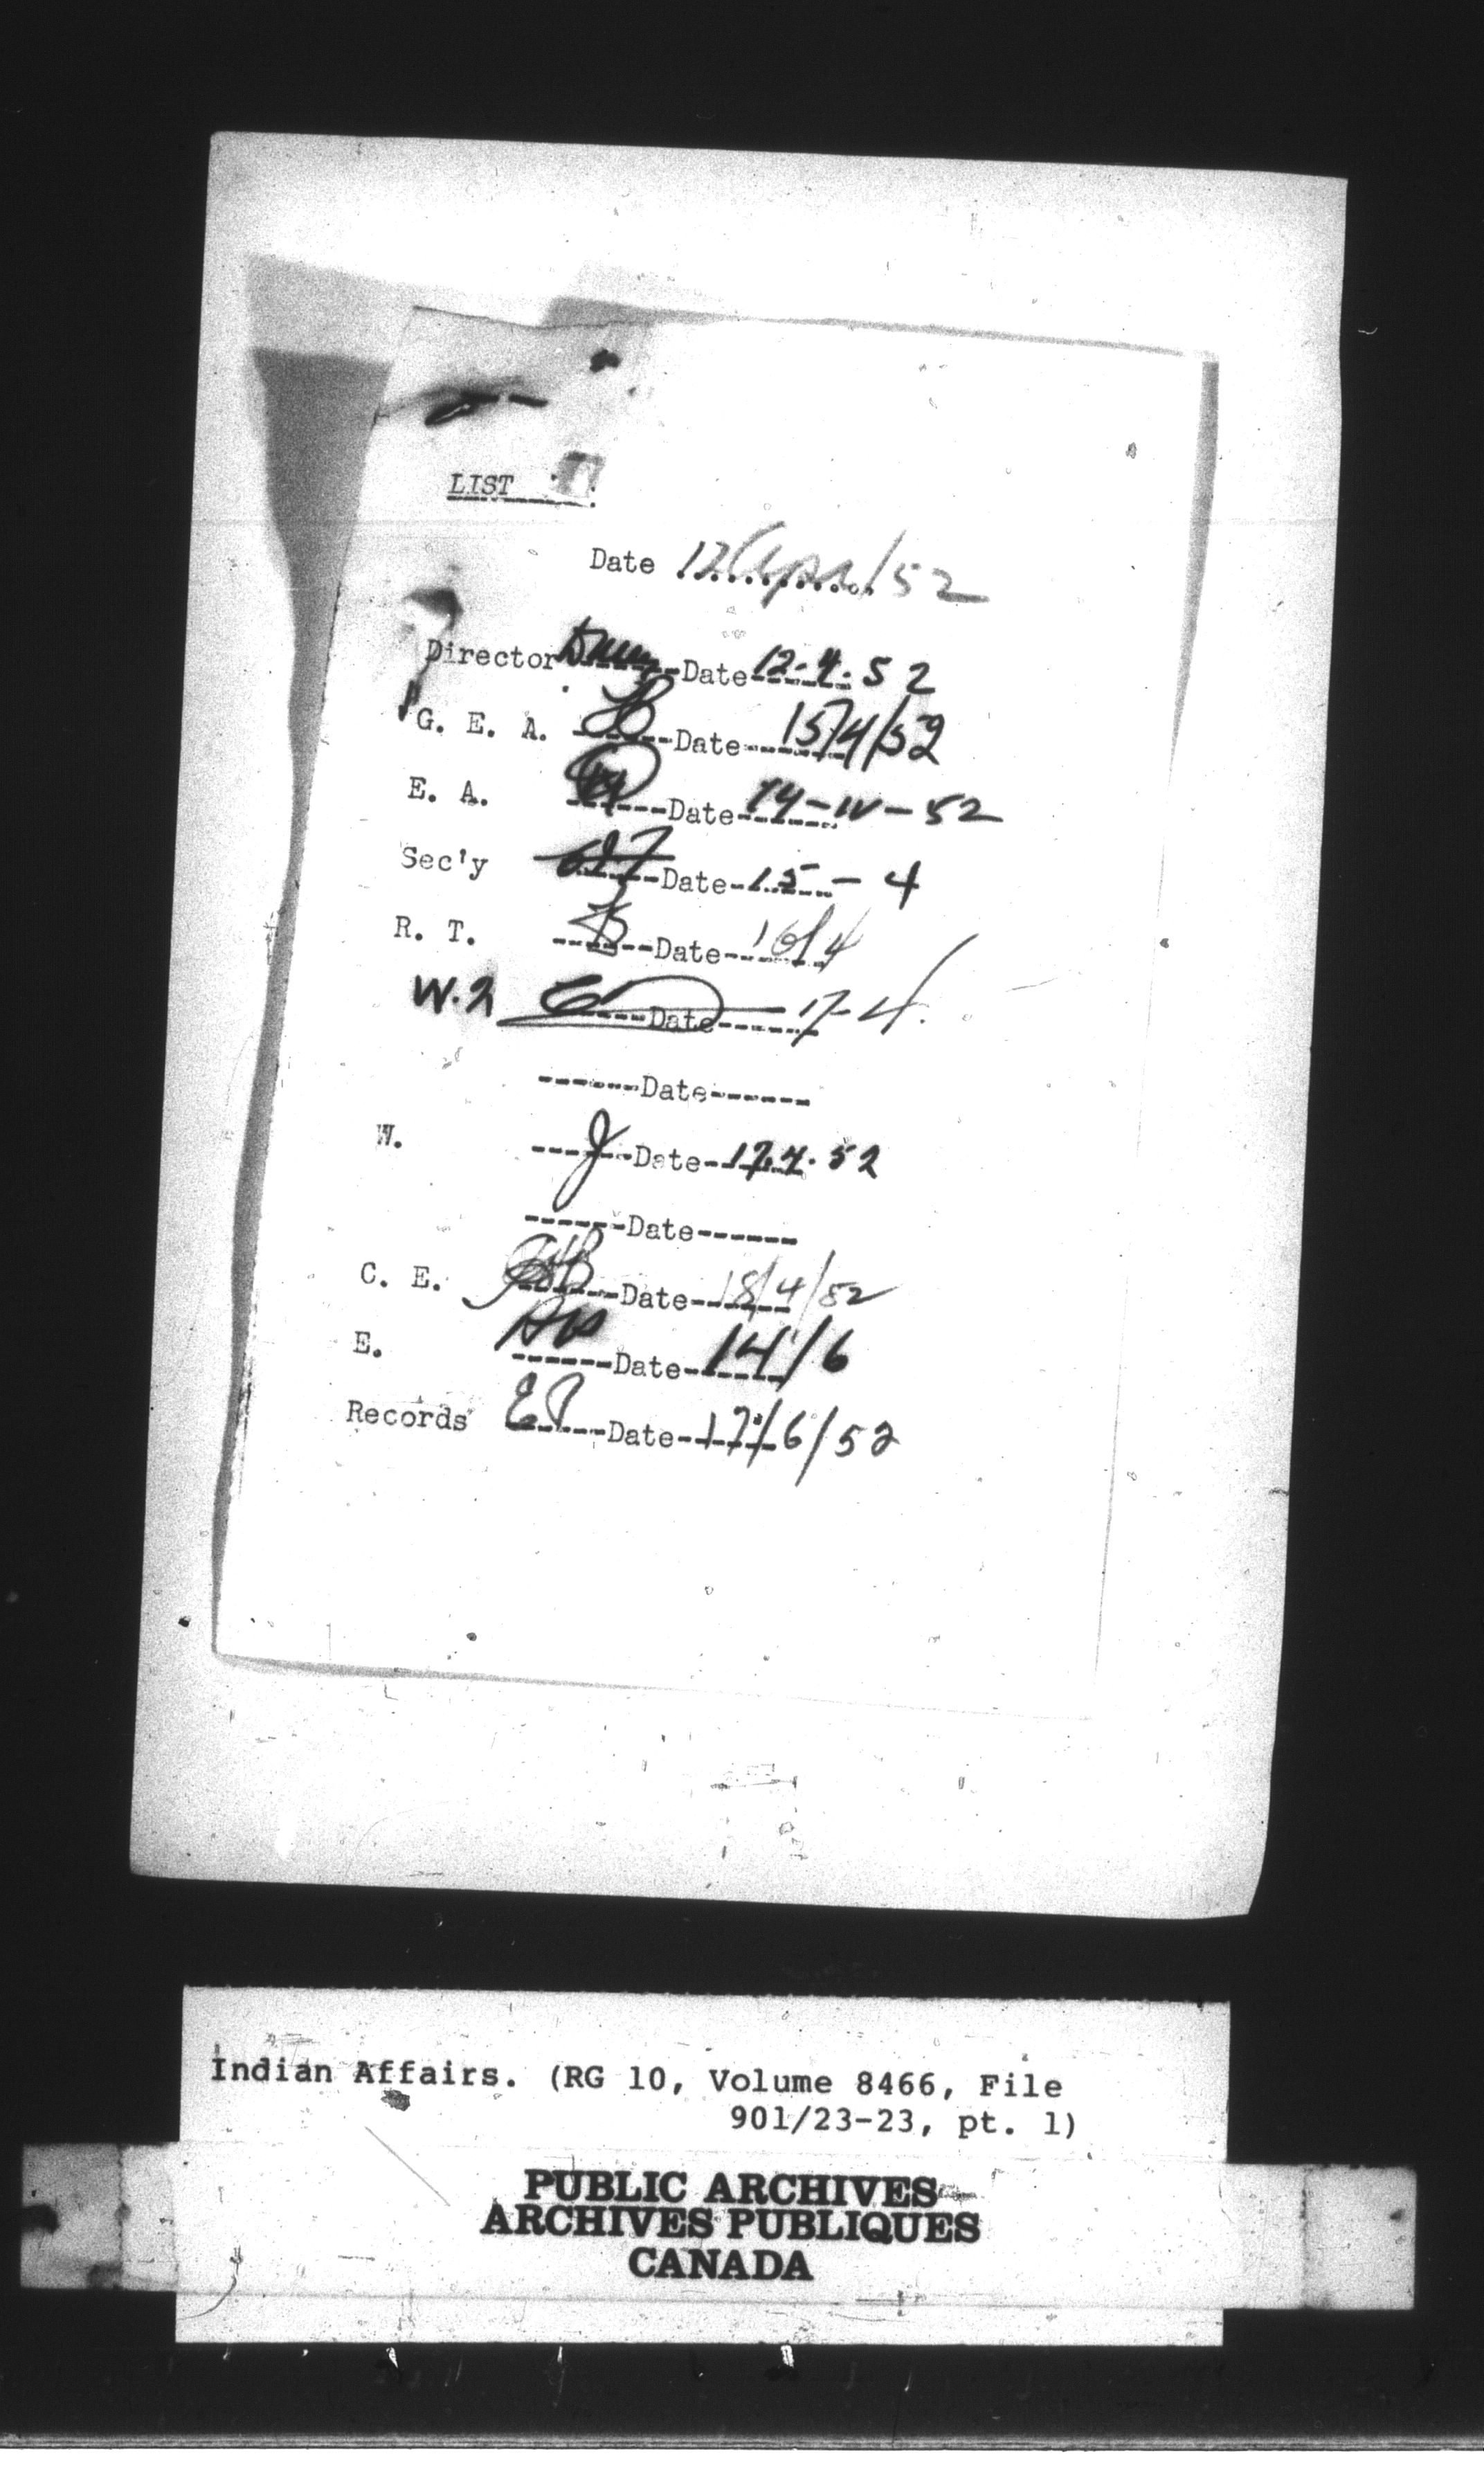 LIST
Date 12 Apr/52
Director Date 12.4.52
G. E. A. Date 15/4/52
E. A. Date 14-IV-52
Sec'y Date 15-4
R. T. Date 16/4
W.2 Date 17-4.
Date
W. J Date 17.4.52
Date
C. E. Date 18/4/52
E. Date 14/6
Records EP Date 17/6/52
Indian Affairs. (RG 10, Volume 8466, File
901/23-23, pt. 1)
PUBLIC ARCHIVES
ARCHIVES PUBLIQUES
CANADA